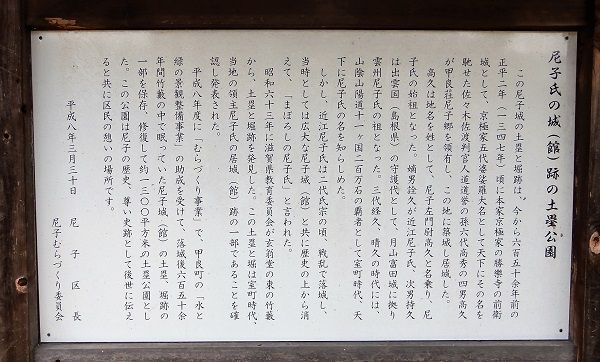 尼子氏の城(館)跡の土塁公園
この尼子城の土塁と堀跡は、今から六百五十余年前の
正平二年(一三四七年)頃に本家京極家の勝樂寺の前衛
城として、京極家五代婆娑羅大名として天下にその名を
馳せた佐々木佐渡判官入道道誉の孫六代高秀の四男高久
が甲良荘尼子郷を領有し、この地に築城し居城した。
高久は地名を姓として、尼子左門尉高久と名乗り、尼
子氏の始祖となった。嫡男詮久が近江尼子氏、次男持久
は出雲国(島根県)の守護代として、月山富田城に拠り
雲州尼子氏の祖となった。三代経久、晴久の時代には、
山陰山陽道十一ヶ国二百万石の覇者として室町時代、天
下に尼子氏の名を知らしめた。
しかし、近江尼子氏は二代氏宗の頃、戦乱で落城し、
当時としては広大な尼子城(館)と共に歴史の上から消
えて、「まぼろしの尼子氏」と言われた。
昭和六十三年に滋賀県教育委員会が玄翁堂の東の竹薮
から、土塁と堀跡を発見した。この土塁と堀は室町時代、
当地の領主尼子氏の居城(館)跡の一部であることを確
認し発表された。
平成八年度に「むらづくり事業」で、甲良町の「水と
緑の景観整備事業」の助成を受けて、落城後六百五十余
年間竹薮の中で眠っていた尼子城(館)の土塁、堀跡の
一部を保存、修復して約一三〇〇平方米の土塁公園とし
た。この公園は尼子の歴史、尊い史跡として後世に伝え
ると共に区民の憩いの場所です。
平成八年三月三十日
尼子区長
尼子むらづくり委員会